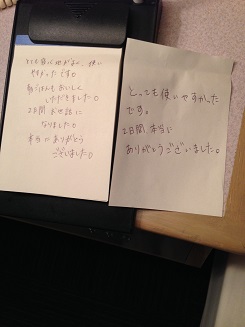 とても居心地がよく、使い
やすかったです。
朝ごはんもおいしく
いただきました。
2日間お世話に
なりました。
本当にありがとう
ございました。
とっても使いやすかった
です。
2日間本当に
ありがとうございました。